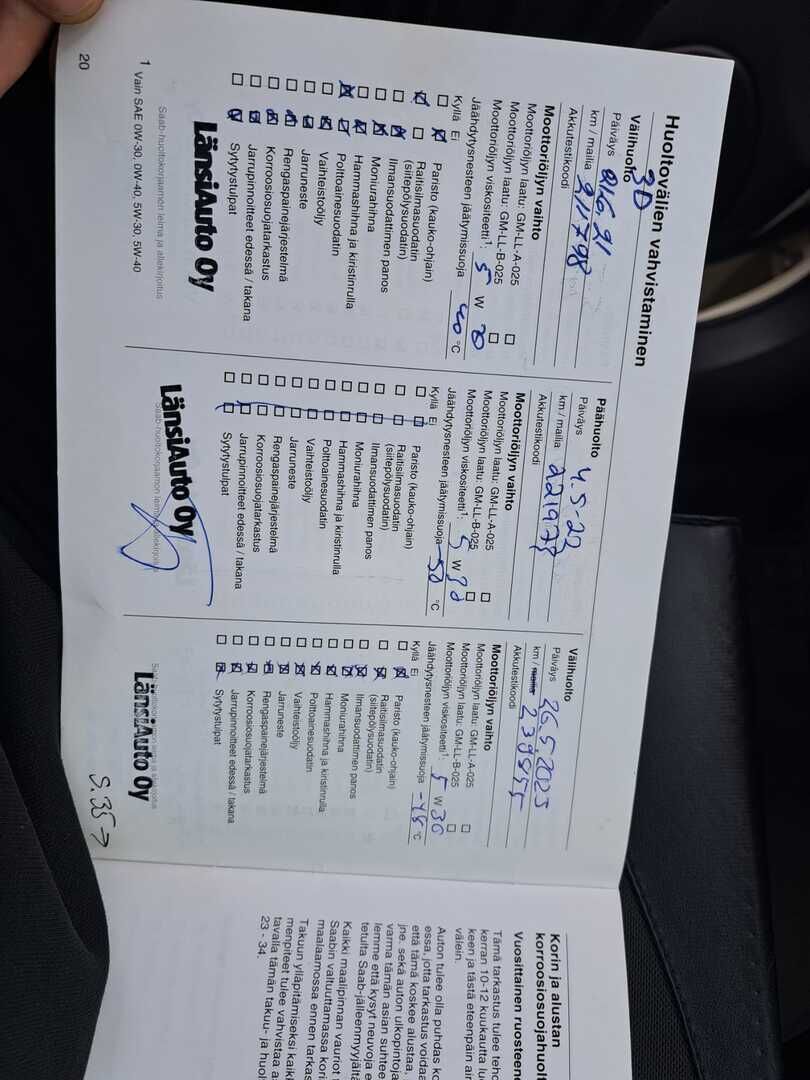 Huoltovälien vahvistaminen
3D
Välihuolto
Päiväys 21.6.21
km / mailia 211798
Akkutestikoodi
Moottoriöljyn vaihto
Moottoriöljyn laatu: GM-LL-A-025
Moottoriöljyn laatu: GM-LL-B-025
Moottoriöljyn viskositeetti¹: 5 W 30
Jäähdytysnesteen jäätymissuoja -40 °C
Kyllä Ei
Paristo (kauko-ohjain)
Raitisilmasuodatin
(siitepölysuodatin)
Ilmansuodattimen panos
Moniurahihna
Hammashihna ja kiristinrulla
Polttoainesuodatin
Vaihteistoöljy
Jarruneste
Rengaspainejärjestelmä
Korroosiosuojatarkastus
Jarrupinnoitteet edessä / takana
Sytytystulpat
LänsiAuto Oy
Saab-huoltokorjaamon leima ja allekirjoitus
1 Vain SAE 0W-30, 0W-40, 5W-30, 5W-40
20
Päähuolto
Päiväys 4.5-23
km / mailia 221978
Akkutestikoodi
Moottoriöljyn vaihto
Moottoriöljyn laatu: GM-LL-A-025
Moottoriöljyn laatu: GM-LL-B-025
Moottoriöljyn viskositeetti¹: 5 W 30
Jäähdytysnesteen jäätymissuoja -50 °C
Kyllä Ei
Paristo (kauko-ohjain)
Raitisilmasuodatin
(siitepölysuodatin)
Ilmansuodattimen panos
Moniurahihna
Hammashihna ja kiristinrulla
Polttoainesuodatin
Vaihteistoöljy
Jarruneste
Rengaspainejärjestelmä
Korroosiosuojatarkastus
Jarrupinnoitteet edessä / takana
Sytytystulpat
LänsiAuto Oy
Saab-huoltokorjaamon leima
Välihuolto
Päiväys 26.5.2025
km / mailia
Akkutestikoodi
Moottoriöljyn vaihto
Moottoriöljyn laatu: GM-LL-A-025
Moottoriöljyn laatu: GM-LL-B-025
Moottoriöljyn viskositeetti¹: 5 W 30
Jäähdytysnesteen jäätymissuoja -48 °C
Kyllä Ei
Paristo (kauko-ohjain)
Raitisilmasuodatin
(siitepölysuodatin)
Ilmansuodattimen panos
Moniurahihna
Hammashihna ja kiristinrulla
Polttoainesuodatin
Vaihteistoöljy
Jarruneste
Rengaspainejärjestelmä
Korroosiosuojatarkastus
Jarrupinnoitteet edessä / takana
Sytytystulpat
LänsiAuto Oy
S. 35 →
Korin ja alustan
korroosiosuojahuolt
Vuosittainen ruosteen
Tämä tarkastus tulee teh
kerran 10-12 kuukautta lu
keen ja tästä eteenpäin ai
välein.
Auton tulee olla puhdas ko
essa, jotta tarkastus voidaa
että tämä koskee alustaa.
jne. sekä auton ulkopintoja
varma tämän asian suhtee
lemme että kysyt neuvoja e
tetulta Saab-jälleenmyyjältä
Kaikki maalipinnan vauriot
Saabin valtuuttamassa kori
maalaamossa ennen tarkas
Takuun ylläpitämiseksi kaikk
menpiteet tulee vahvistaa as
tavalla tämän takuu- ja huol
23 - 34.